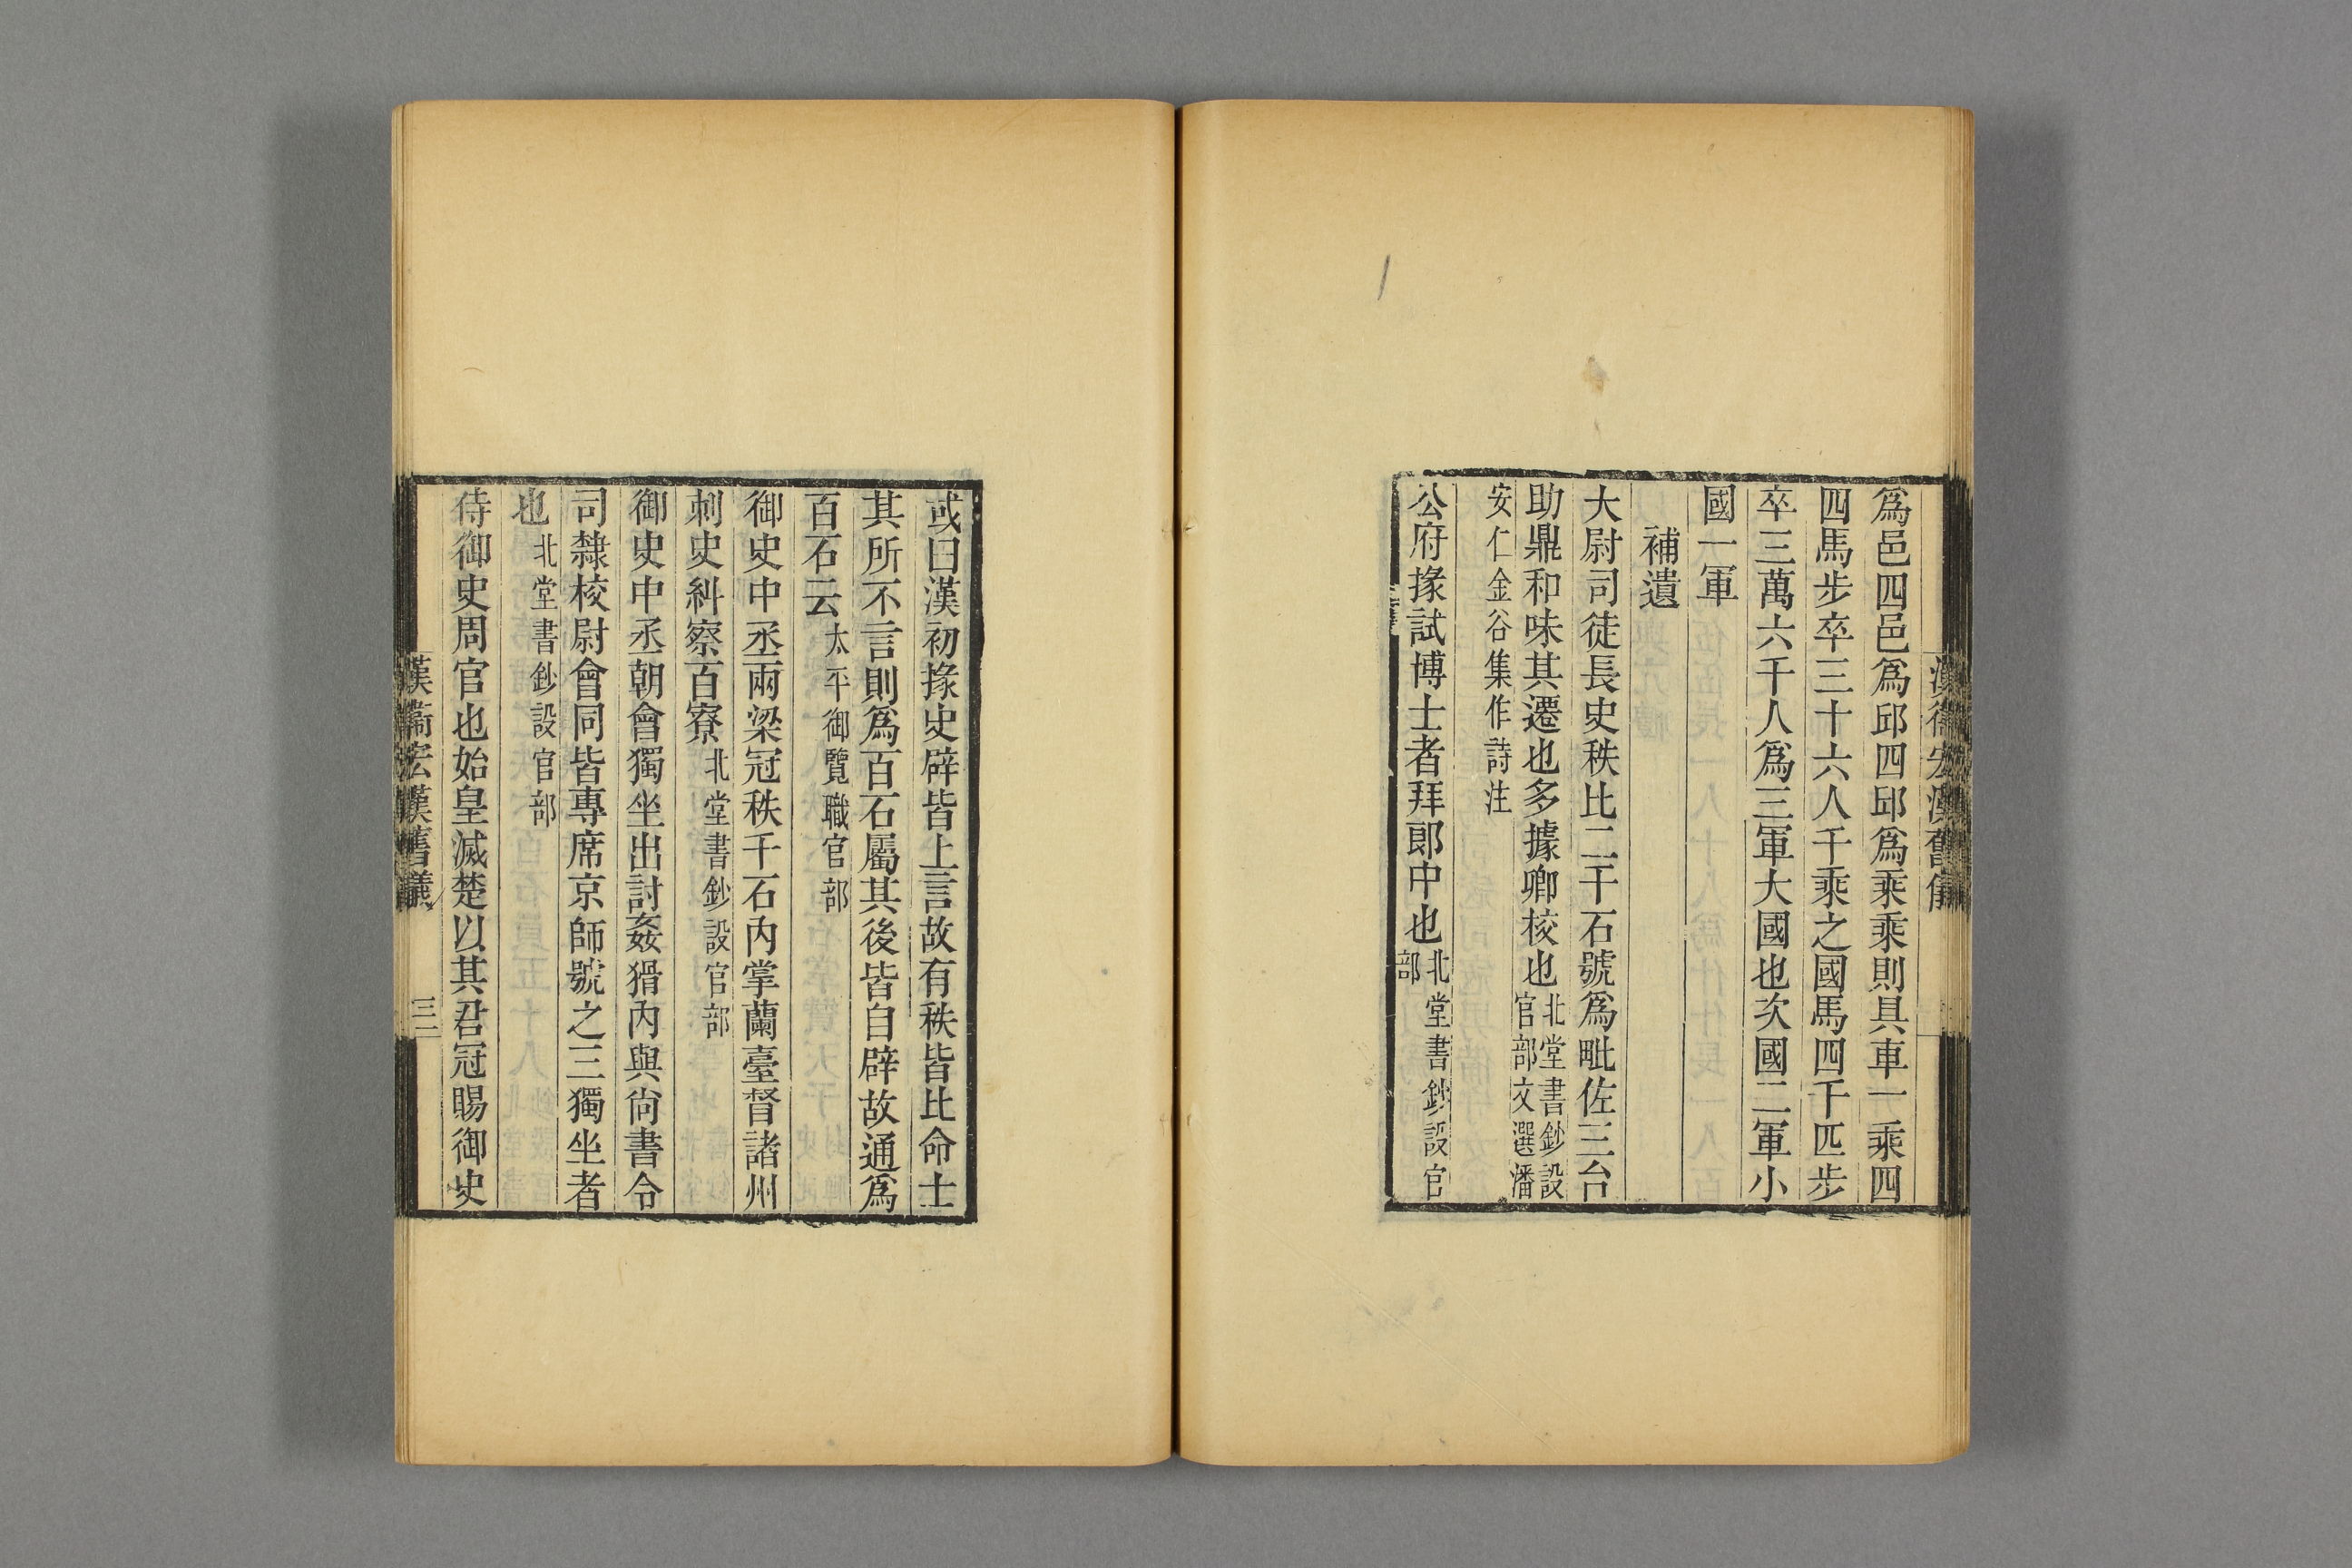 爲邑四邑爲邱四邱爲乘乘則具車一乘四
四馬步卒三十六人千乘之國馬四千匹步
卒三萬六千人爲三軍大國也次國二軍小
國一軍
補遺
大尉司徒長史秩比二千石號爲毗佐三台
助鼎和味其遷也多據卿校也北堂書鈔設官部文選潘
安仁金谷集作詩注
公府掾試博士者拜郎中也北堂書鈔設官部
或曰漢初掾史辟皆上言故有秩皆比命士
其所不言則爲百石屬其後皆自辟故通爲
百石云太平御覽職官部
御史中丞兩梁冠秩千石內掌蘭臺督諸州
刺史糾察百寮北堂書鈔設官部
御史中丞朝會獨坐出討姦猾內與尚書令
司隸校尉會同皆專席京師號之三獨坐者
也北堂書鈔設官部
侍御史周官也始皇滅楚以其君冠賜御史
漢衞宏漢舊儀